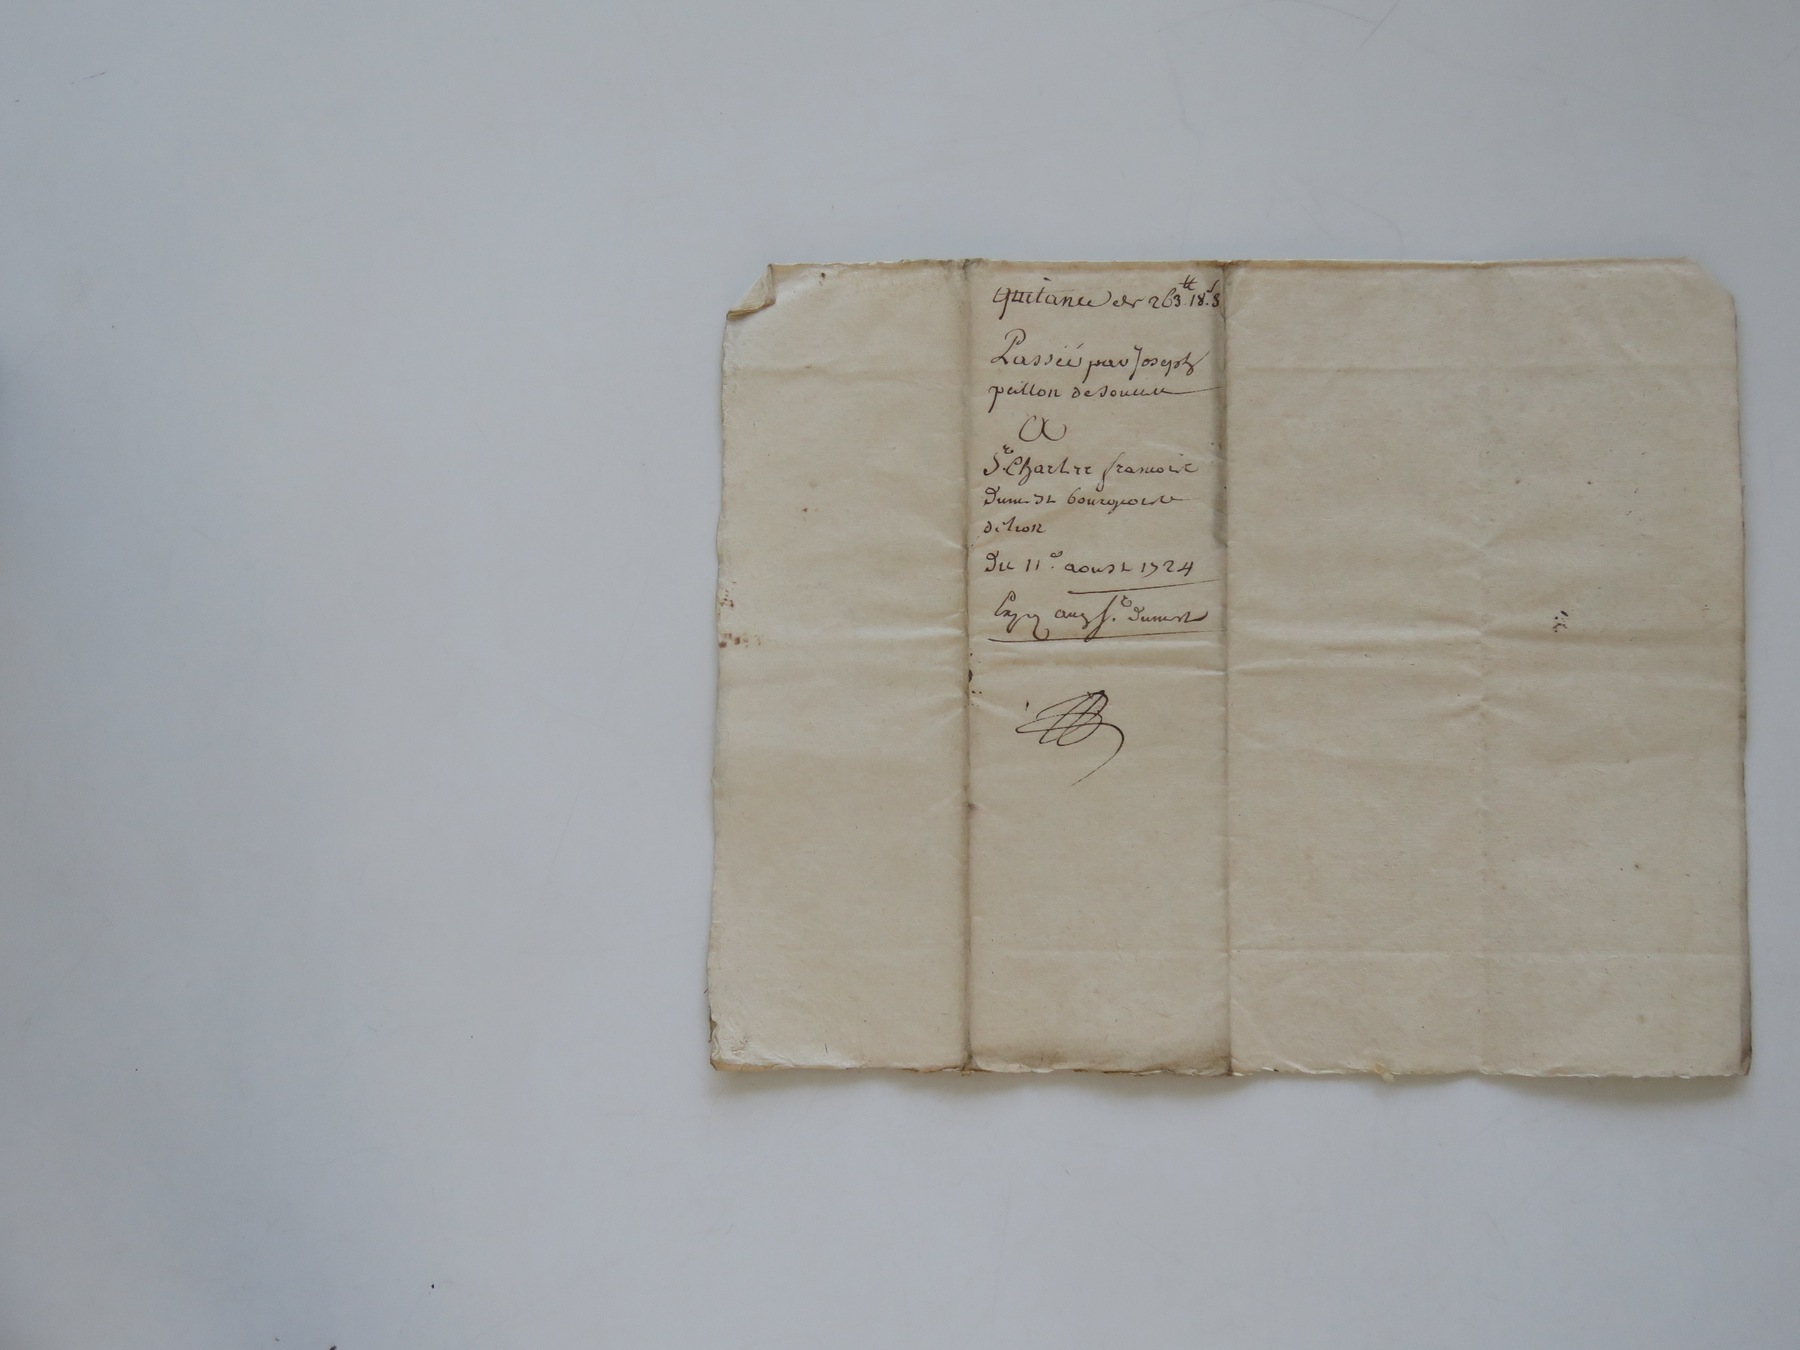 Quitance de 263.tt 18.s 8
Passée par Joseph
peillon de soucieu
A
Sr. Charles francois
Dumest bourgeois
de lion
Du 11e. aoust 1724
Expn aud Sr. Dumest